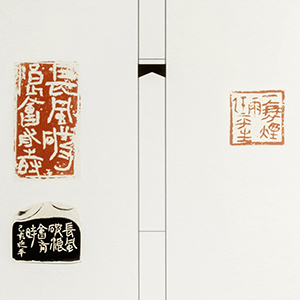 長風破
浪會有時
長風
破浪
會有
時
一蓑煙
雨
任平生